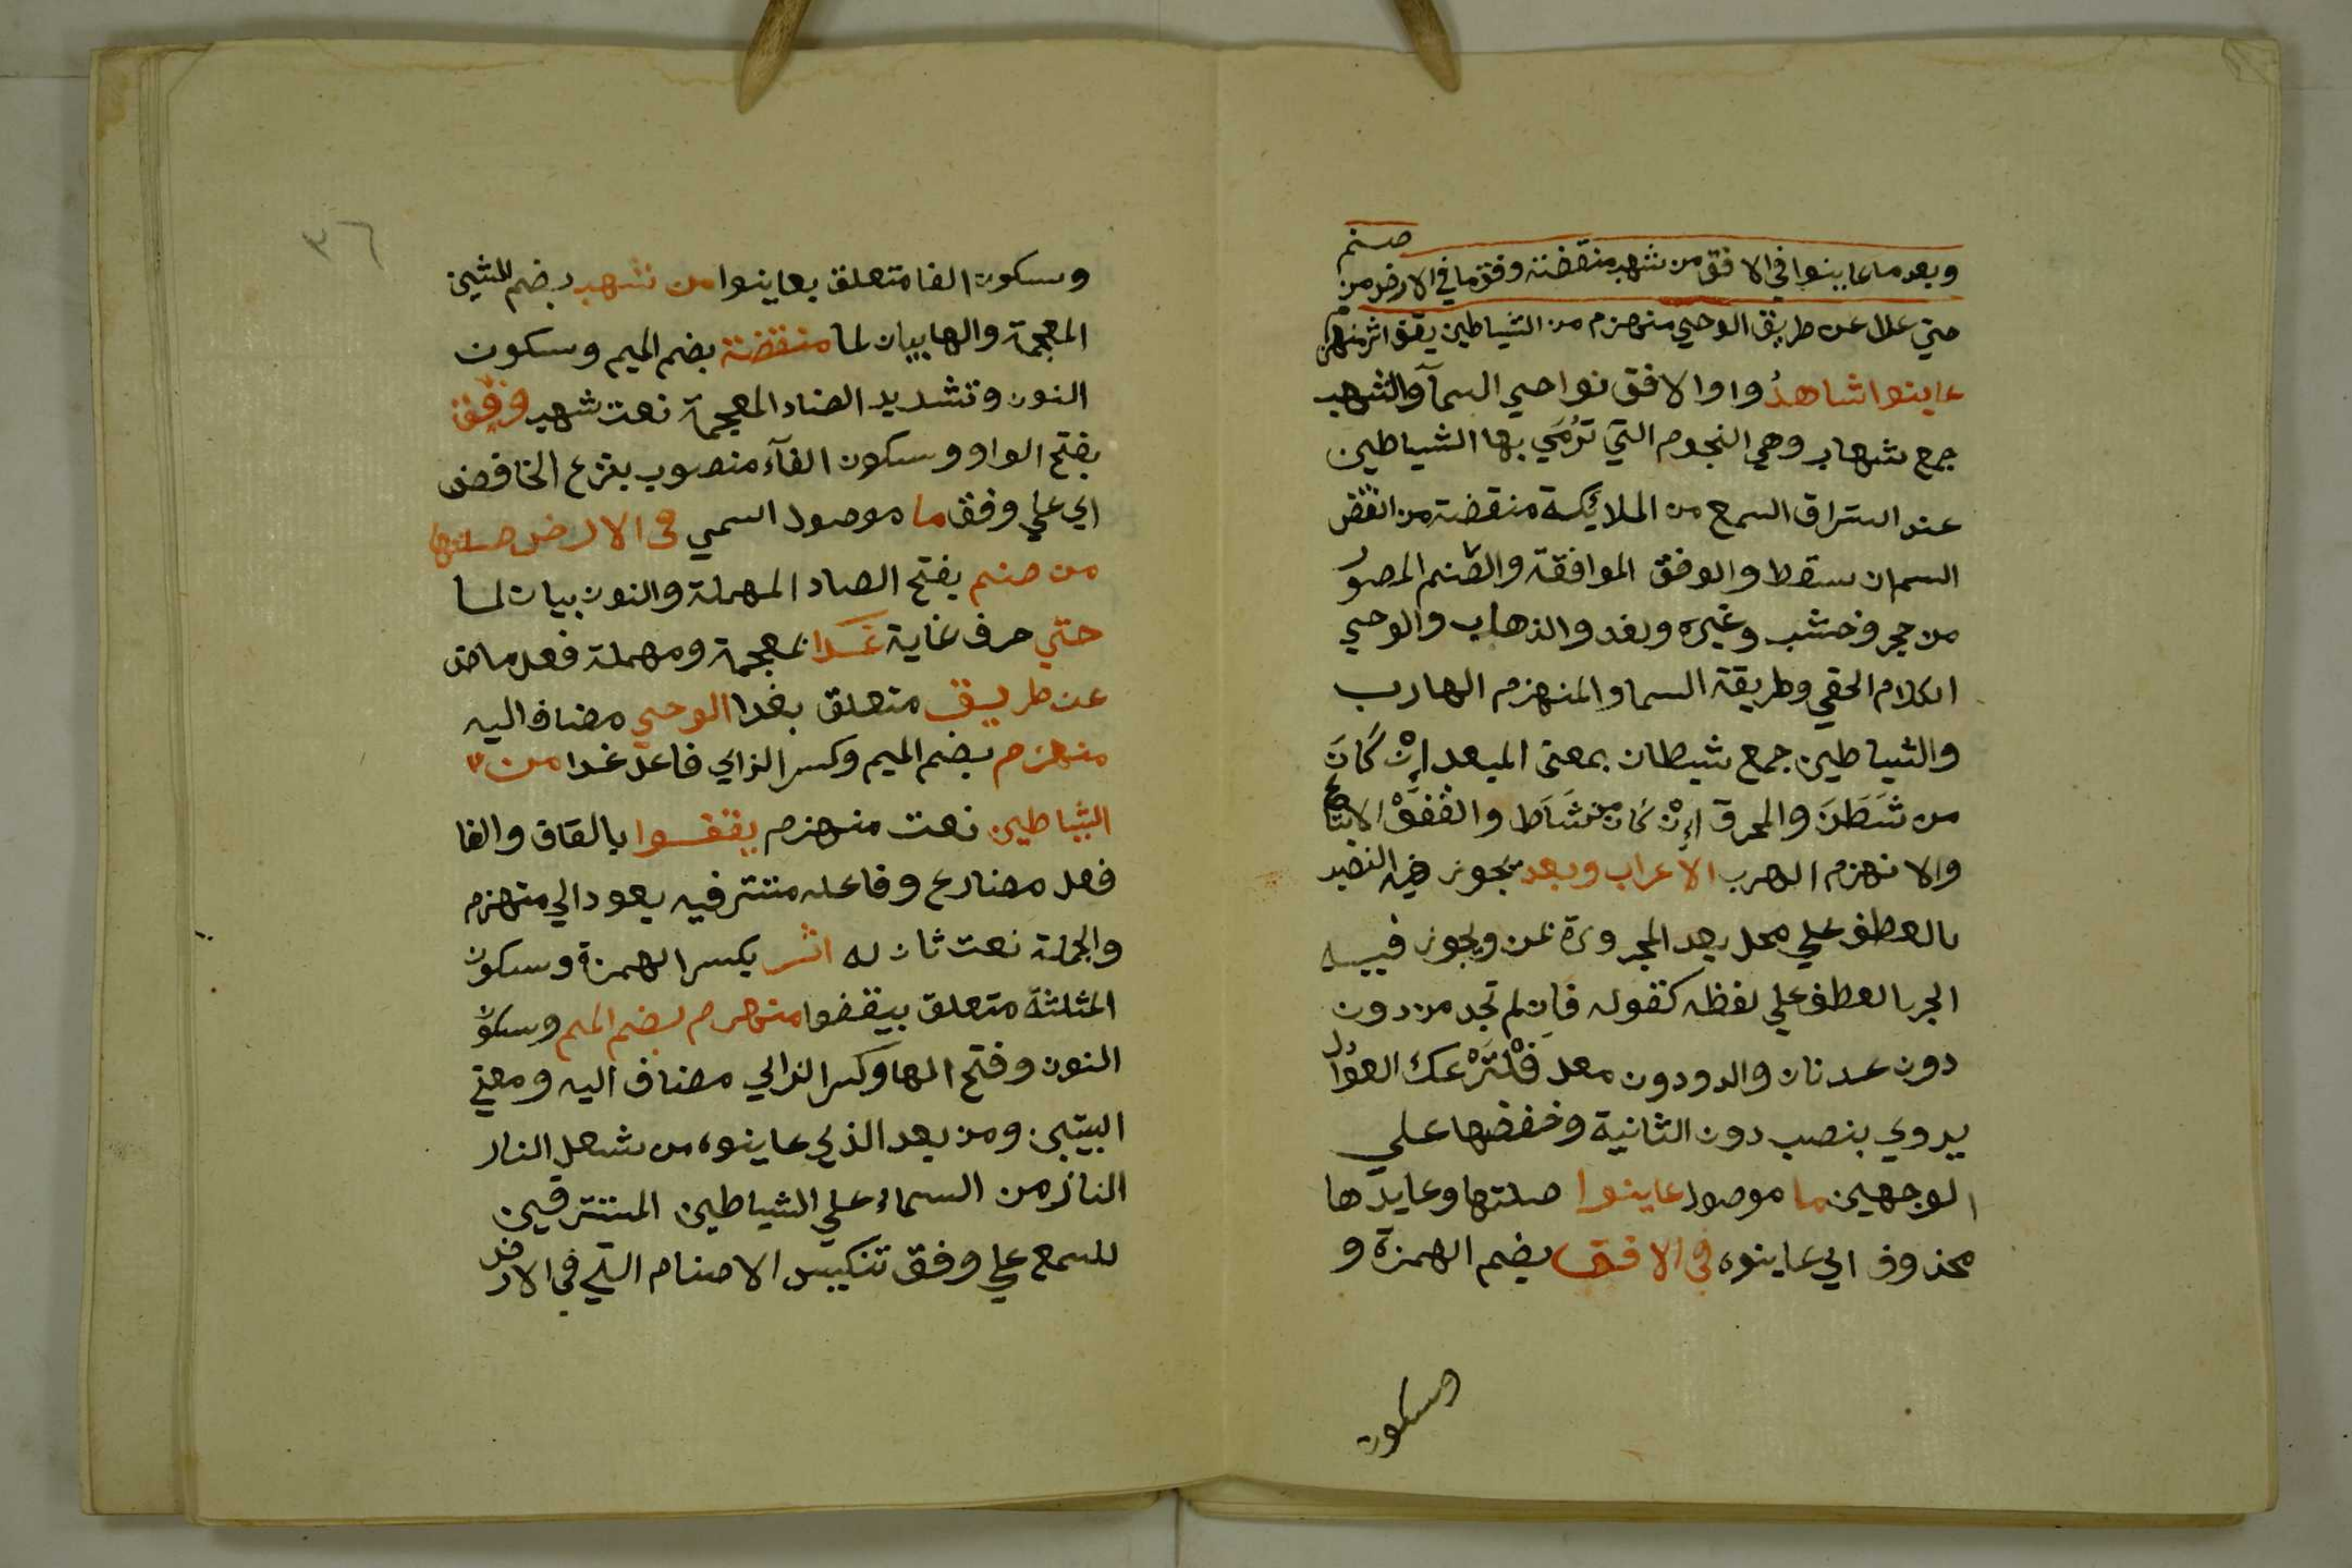 وبعد ما عاينوا في الافق من شهب منقضة وفق ما في الارض من صنم
حتي غدا عن طريق الوحي منهزم من الشياطين يقفوا اثر منهزم
عاينوا شاهدُوا والافق نواحي السمآ والشهب
جمع شهاب وهي النجوم التي تُرْمَي بها الشياطين
عند استراق السمع من الملائيكة منقضة من انقض
السمان سقط والوفق الموافقة والصّنم المصوُر
من حجر وخشب وغيره وغدوا الذهاب والوحي
الكلام الخفي وطريقة السما والمنهزم الهارب
والشياطين جمع شيطان بمعني المبعد اِنْ كَانَ
من شَطَنَ والمحرق اِنْ كَان من شَاط والقَفْوُ الاتباع
والانهزم الهرب الاعراب وبعد يجوز فيه النصب
بالعطف علي محل بعد المجرورة بمن ويجوز فيه
الجر بالعطف علي لفظه كقوله فاِن لم تجد من دون
دون عدنان والدودون معد فَلْتَزَعْك العوُاذل
يروي بنصب دون الثانية وخفضها علي
الوجهين ما موصول عاينوا صلتها وعايدها
محذوف اي عاينوه في الافق بضم الهمزة و
وسكون
٣٦
وسكون الفا متعلق بعاينوا من شهب بضم الشين
المعجمة والها بيان لما منقضة بضم الميم وسكون
النون وتشديد الضاد المعجمة نعت شهب وفق
بفتح الواو وسكون الفآء منصوب بنزع الخافض
اي علي وفق ما موصول اسمي في الارض صلتها
من صنم بفتح الصاد المهملة والنون بيان لما
حتي حرف غاية غدا بمعجمة ومهملة فعل ماض
عن طريق متعلق بغدا الوحي مضاف اليه
منهزم بضم الميم وكسر الزاي فاعل غدا من
الشياطين نعت منهزم يقفوا بالقاف والفا
فعل مضارع وفاعله مستتر فيه يعود الي منهزم
والجملة نعت ثان له اثر بكسر الهمزة وسكون
المثلثة متعلق بيقفوا منهزم بضم الميم وسكون
النون وفتح الها وكسر الزاي مضاف اليه ومعني
البيتين ومن بعد الذي عاينوه من شعل النار
النازلمن السماء علي الشياطين المسترقين
للسمع علي وفق تنكيس الاصنام التي في الارض